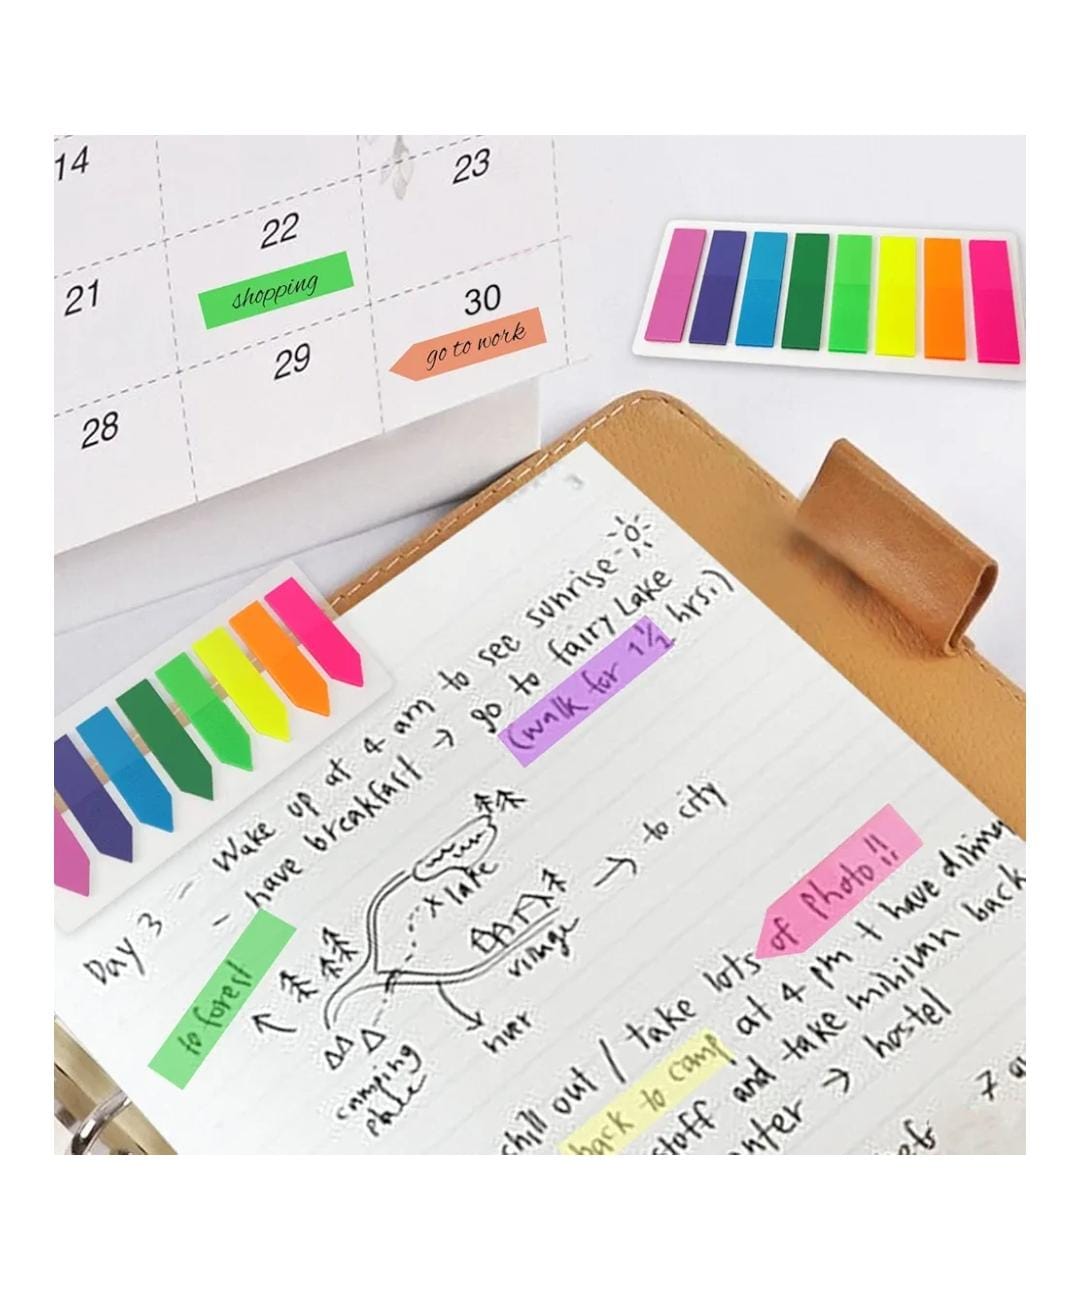 14
22
23
shopping
21
30
go to work
29
28
Day 3 - Wake up at 4 am to see sunrise
- have breakfast → go to fairy Lake
(walk for 1½ hrs.)
to forest
x lake
→ to city
village
river
camping
place
chill out / take lots of photo!!
back to camp at 4 pm + have dinna
stuff and take minivan back
enter → hostel
7